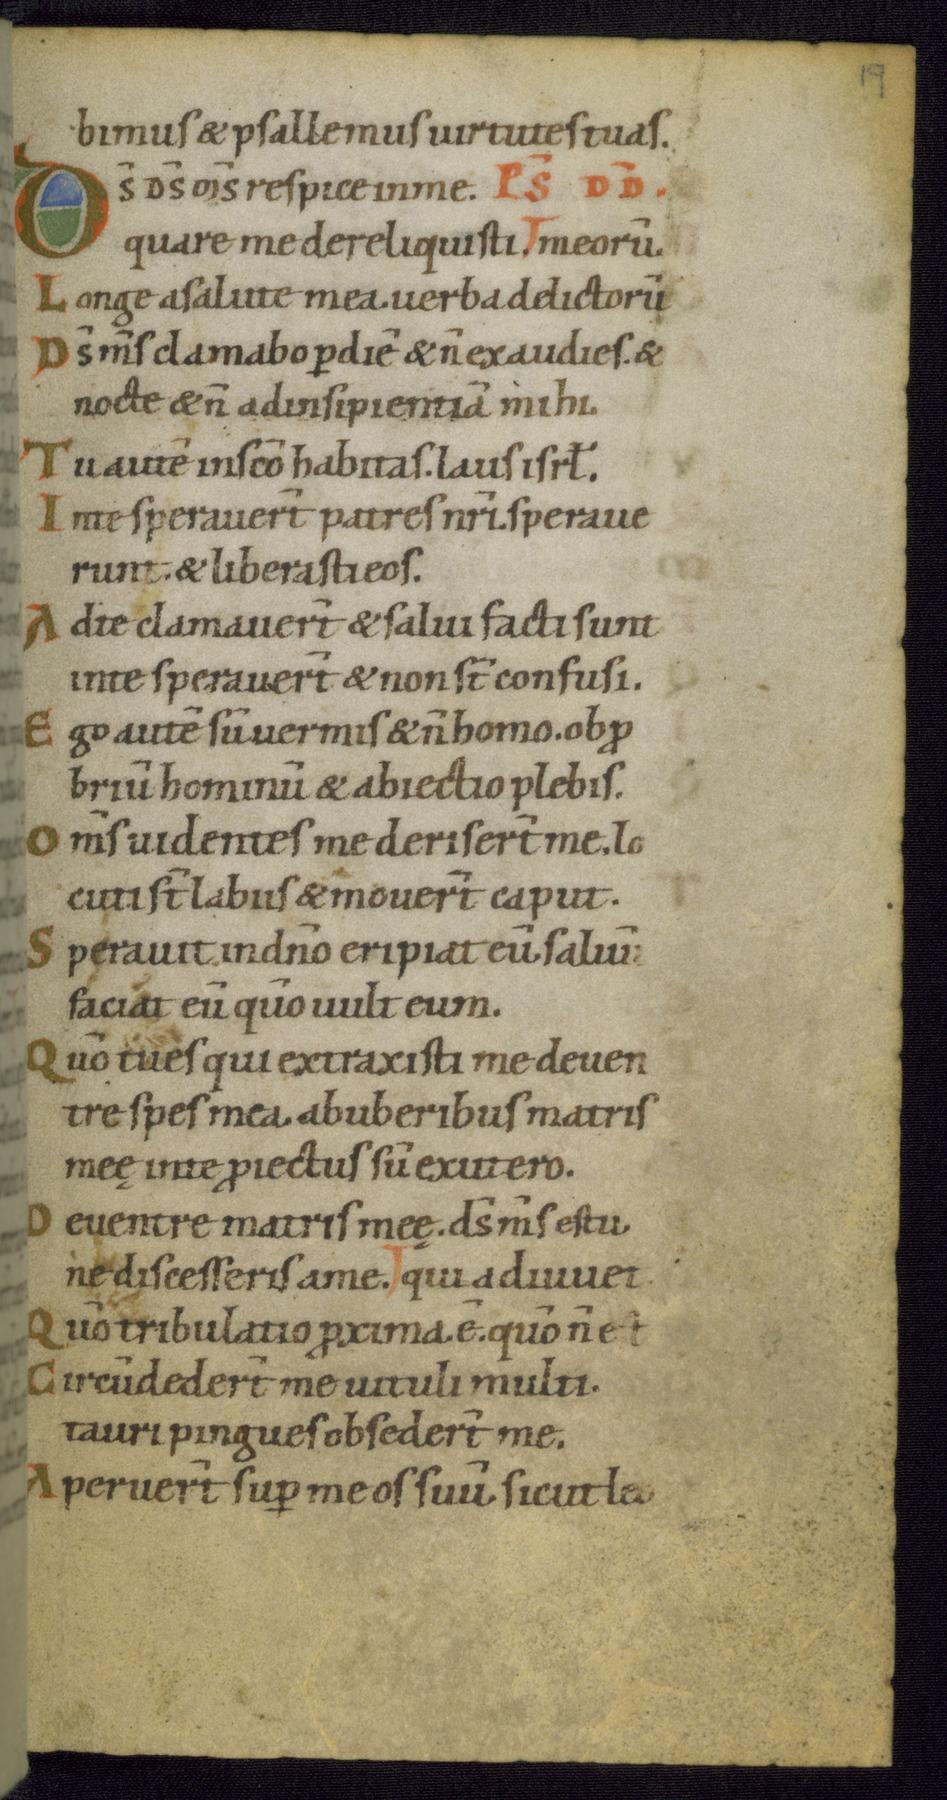 19
bimus & psallemus uirtutes tuas.
D s̄ D̄S m̄s respice in me. PS̄ D̄D̄.
quare me dereliquisti. meorū.
Longe a salute mea. uerba delictorū
Ds̄ m̄s clamabo ꝑ diē & n̄ exaudies. &
nocte & n̄ ad insipientiā mihi.
Tu autē in scō habitas. laus isrl̄.
In te sperauer̄t patres nr̄i. speraue
runt. & liberasti eos.
Ad te clamauer̄t & salui facti sunt
in te sperauer̄t & non st̄ confusi.
Ego autē sū uermis & n̄ homo. obꝓ
briū hominū & abiectio plebis.
Om̄s uidentes me deriser̄t me. lo
cuti st̄ labiis & mouer̄t caput.
Sperauit in dn̄o eripiat eū. saluū
faciat eū quō uult eum.
Quō tu es qui extraxisti me de uen
tre spes mea. ab uberibus matris
meę in te ꝓiectus sū ex utero.
De uentre matris meę. ds̄ m̄s es tu
ne discesseris a me. qui adiuuet
Quō tribulatio ꝓxima. ē. quō n̄ e t̄
Circūdeder̄t me uituli multi.
tauri pingues obseder̄t me.
Aperuer̄t suꝑ me os suū. sicut leo